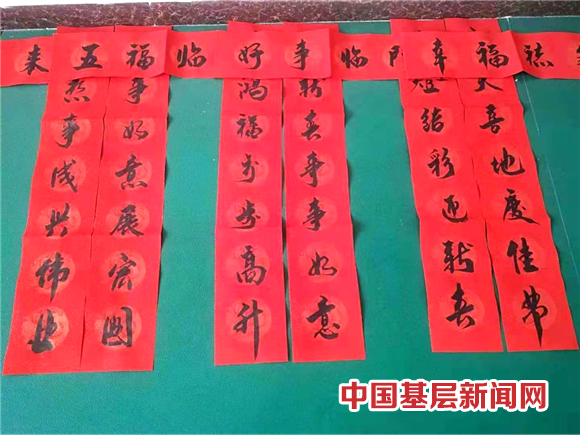 来五福临好事临门幸福
事如意展宏图
事成兴伟业
新春事事如意
鸿福步步高升
天喜地度佳节
结彩迎新春
中国基层新闻网